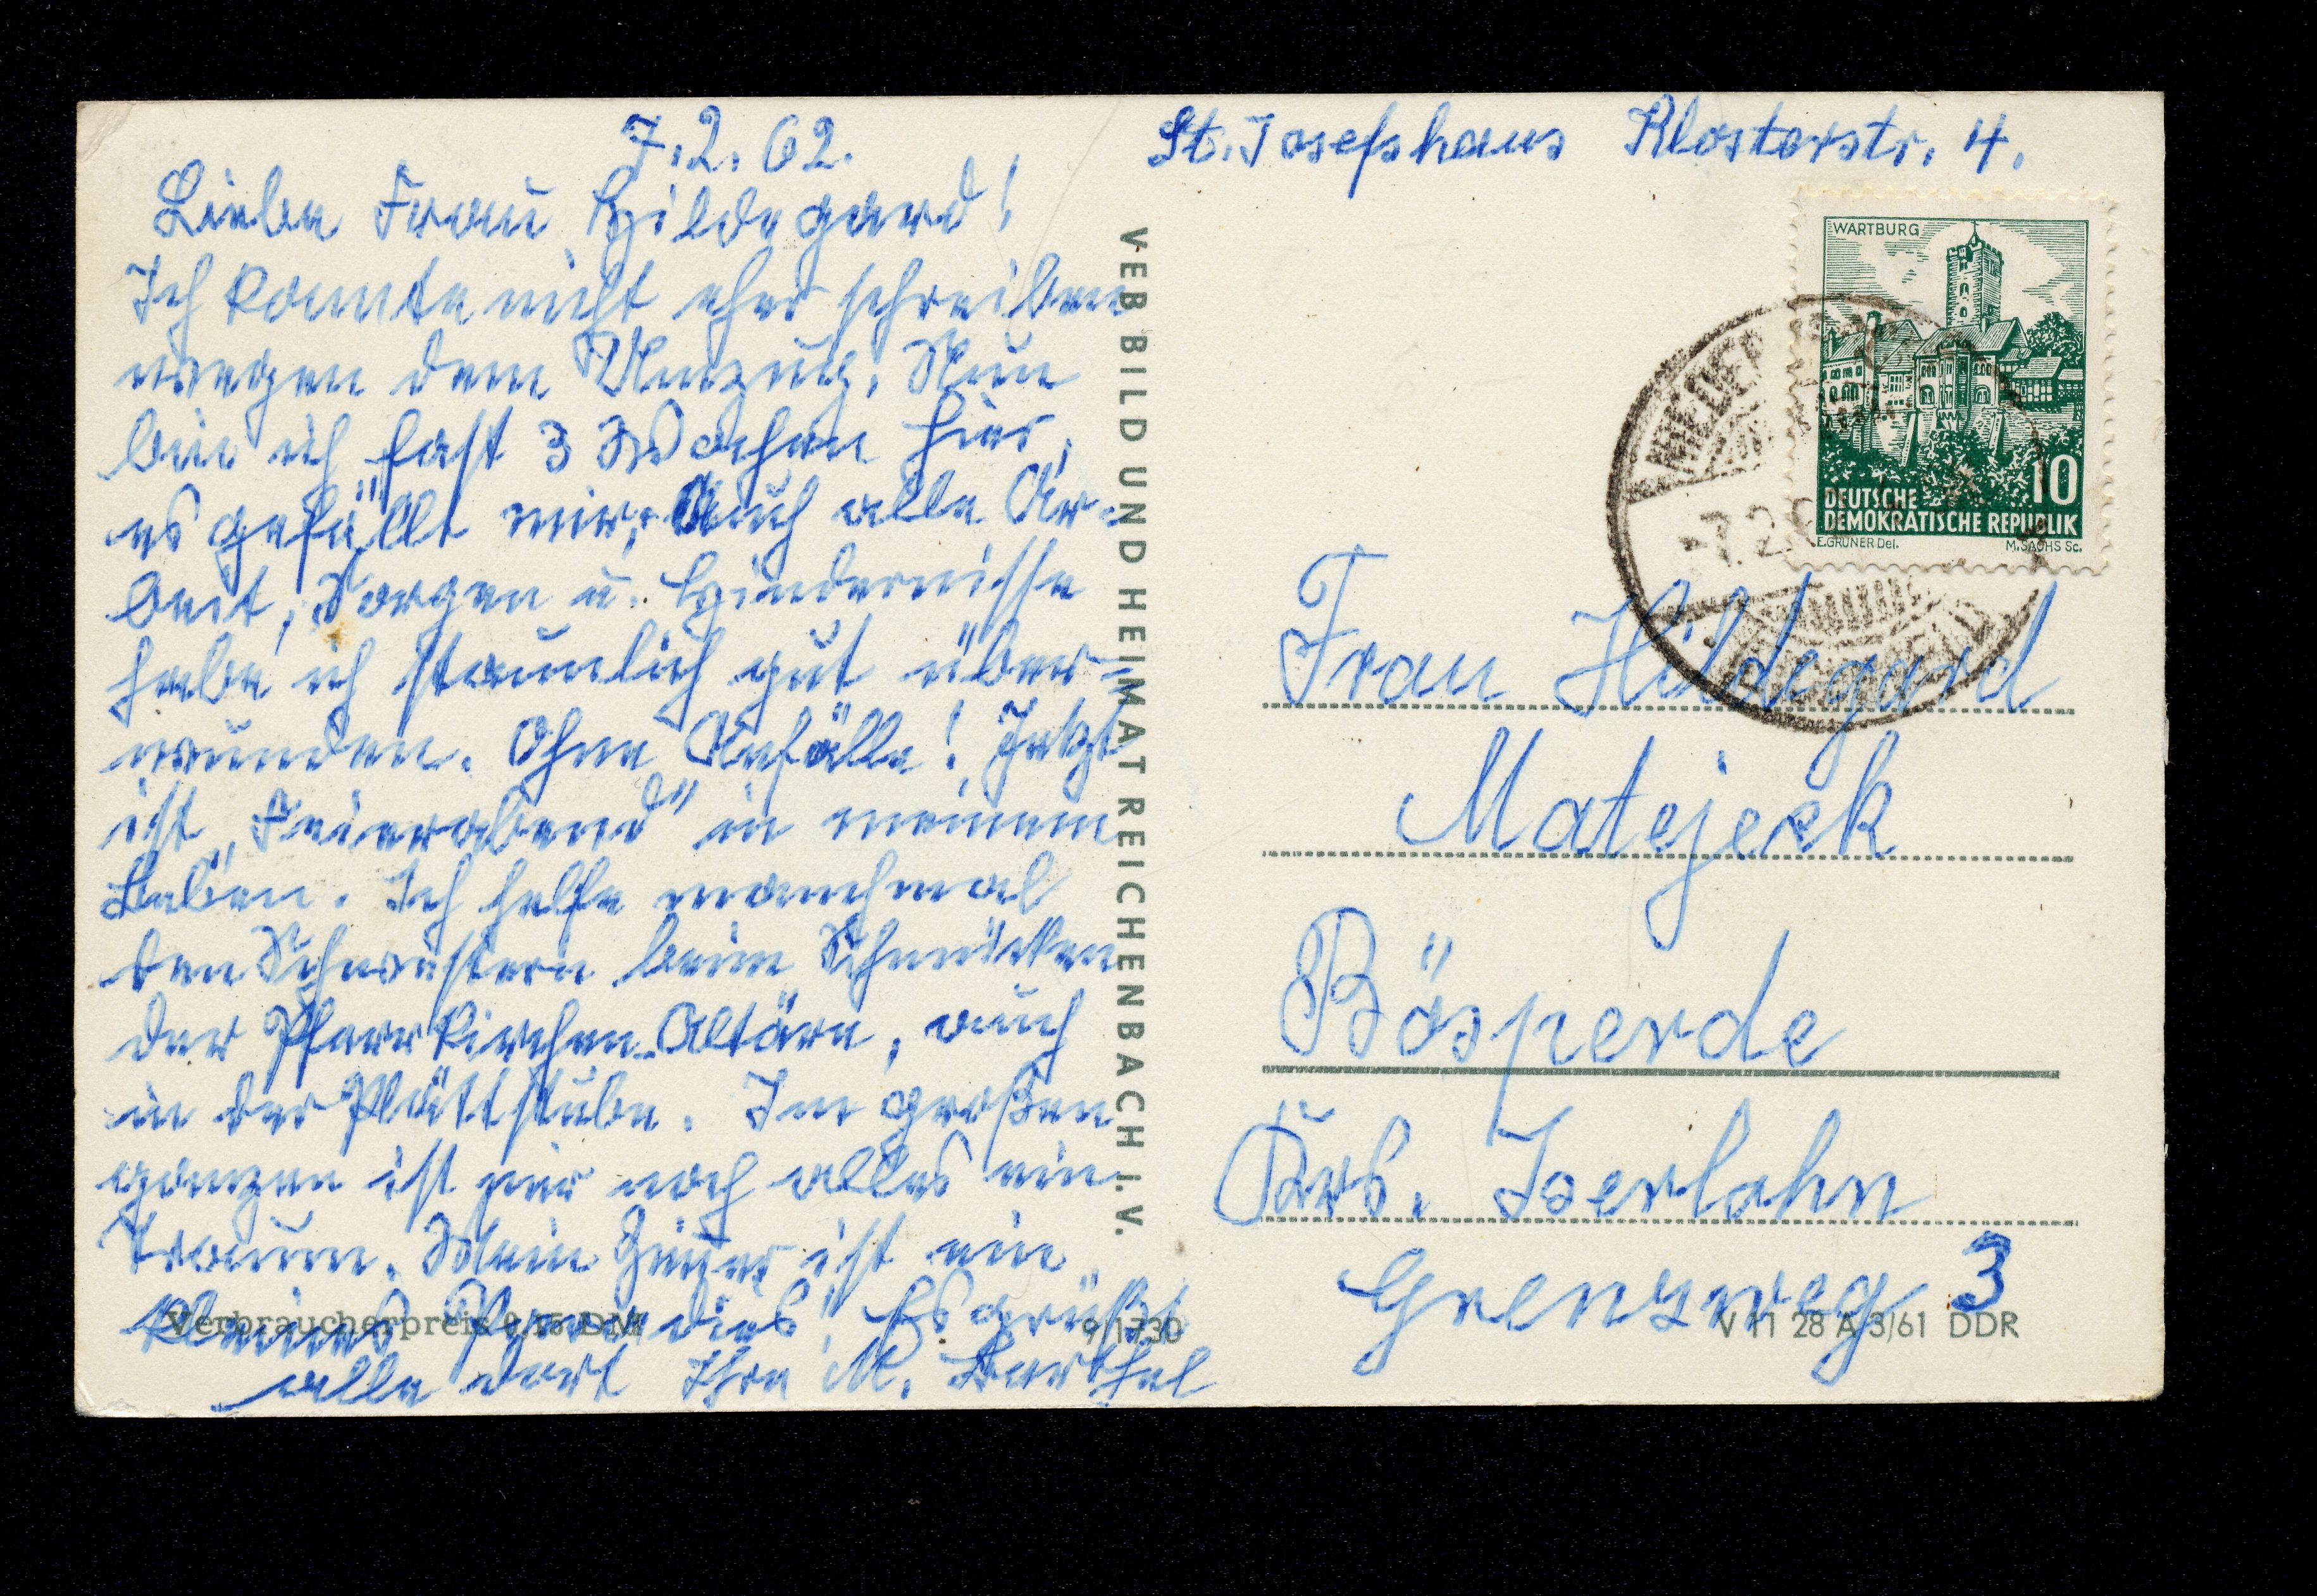 7.2.62.
Liebe Frau Hildegard!
Ich konnte nicht eher schreiben
wegen dem Umzug. Nun
bin ich fast 3 Wochen hier,
es gefällt mir; Auch alle Ar-
beit, Sorgen u. Hindernisse
habe ich staunlich gut über-
wunden. Ohne Anfälle! Jetzt
ist „Feierabend" in meinem
Leben. Ich helfe manchmal
den Schwestern beim Schmücken
der Pfarrkirchen-Altäre, auch
in der Plättstube. Im großen
ganzen ist mir noch alles ein
Traum. Mein Zimmer ist ein
kleines Paradies! Es grüßt
alle dort Ihre M. Barthel
VEB BILD UND HEIMAT REICHENBACH I. V.
Verbraucherpreis 0,15 DM
9/1730
St. Josefshaus Klosterstr. 4.
WARTBURG
10
DEUTSCHE
DEMOKRATISCHE REPUBLIK
E.GRUNER Del. M.SACHS Sc.
-7.2
Frau Hildegard
Matejeek
Bösperde
Krs. Iserlohn
Grenzweg 3
V 11 28 A 3/61 DDR